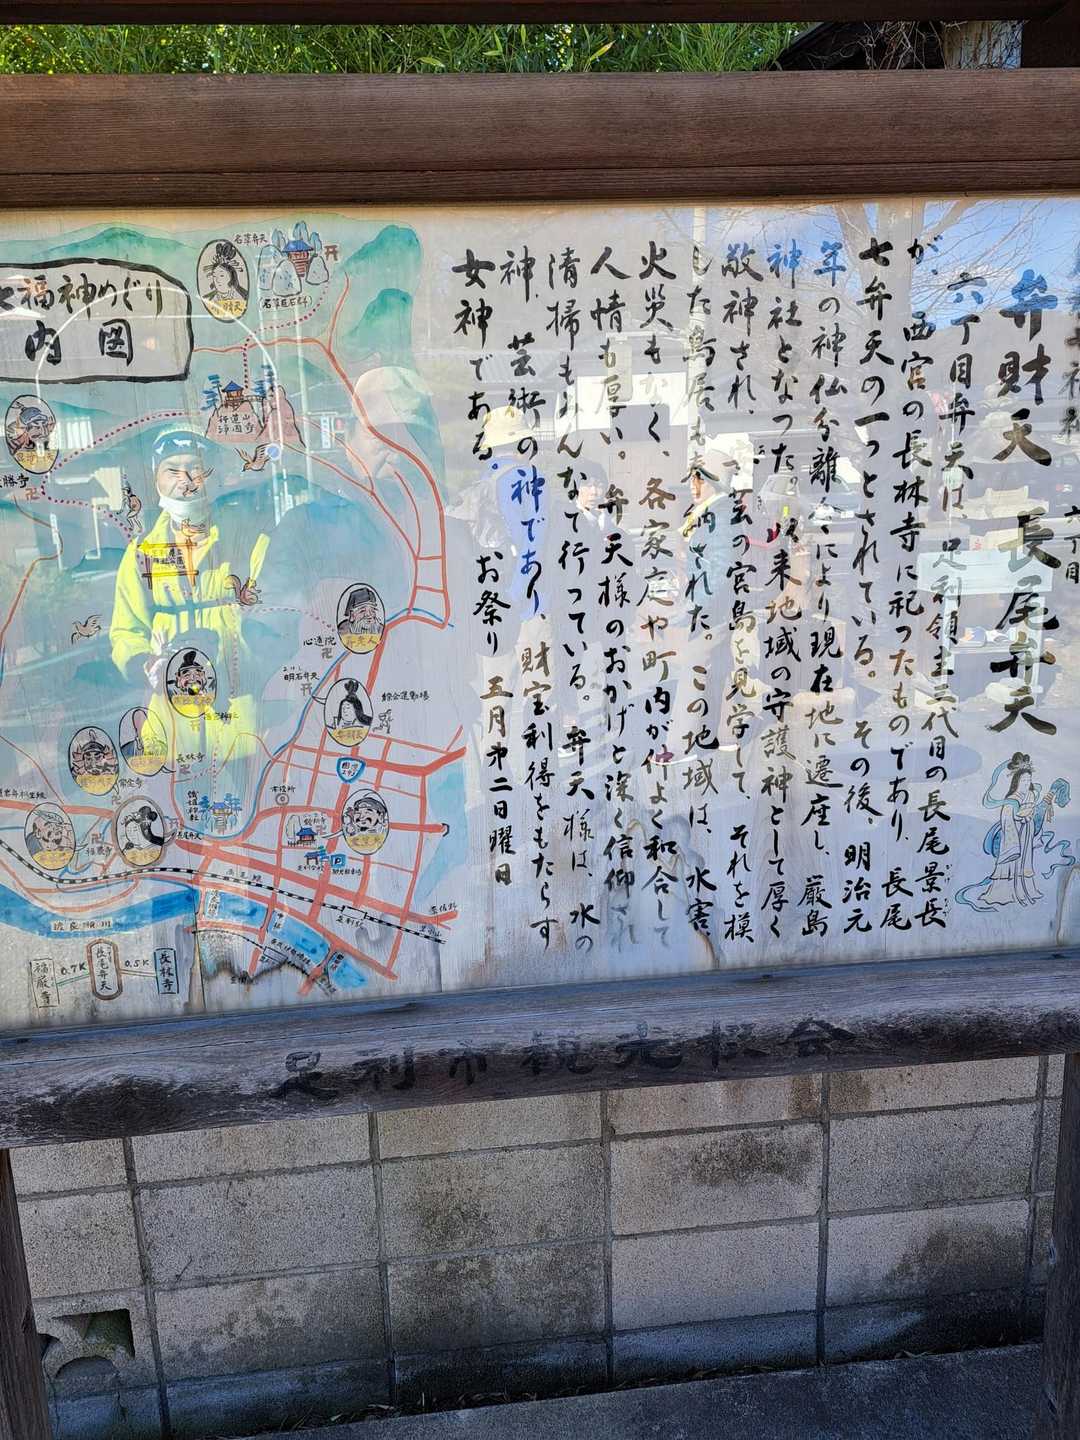 六丁目
弁財天 長尾弁天
六丁目弁天は足利領主三代目の長尾景長
が、西宮の長林寺に祀ったものであり、長尾
七弁天の一つとされている。その後、明治元
年の神仏分離令により現在地に遷座し、厳島
神社となった。以来地域の守護神として厚く
敬神され、安芸の宮島を見学して、それを模
した鳥居も奉納された。この地域は、水害
火災もなく、各家庭や町内が仲よく和合して
人情も厚い。弁天様のおかげと深く信仰され
清掃もみんなで行っている。弁天様は、水の
神、芸術の神であり、財宝利得をもたらす
女神である。
お祭り 五月第二日曜日
七福神めぐり
内図
名草弁天
名草巨石群
行道山
浄因寺
心通院
明石弁天
総合運動場
長林寺
織姫神社
長尾弁天
市役所
両毛線
足利駅
渡良瀬川
福厳寺
0.7K
長尾弁天
0.5K
長林寺
P
足利市観光協会